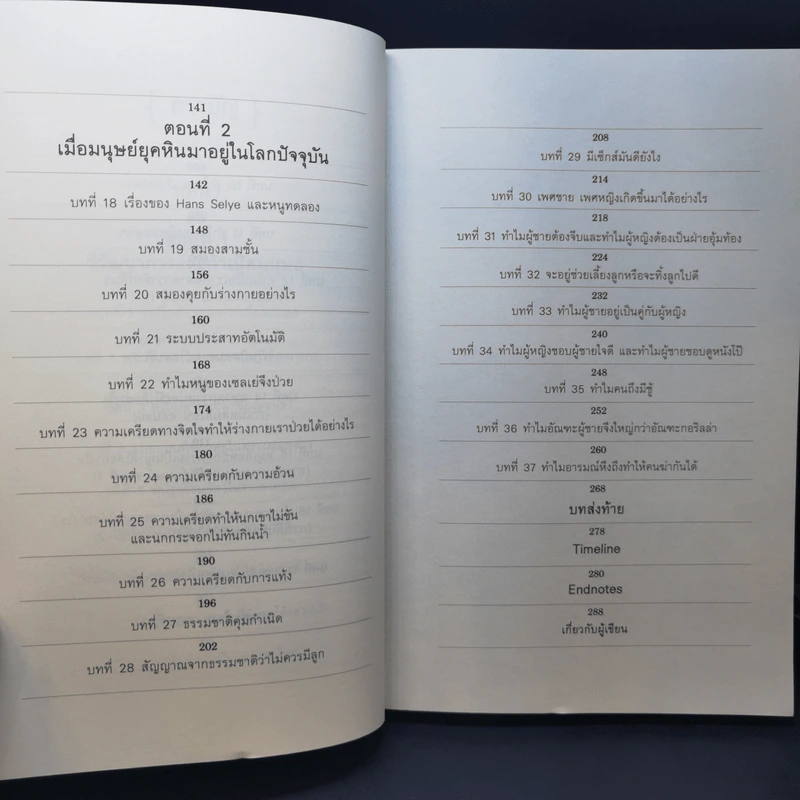 141
ตอนที่ 2
เมื่อมนุษย์ยุคหินมาอยู่ในโลกปัจจุบัน
142
บทที่ 18 เรื่องของ Hans Selye และหนูทดลอง
148
บทที่ 19 สมองสามชั้น
156
บทที่ 20 สมองคุยกับร่างกายอย่างไร
160
บทที่ 21 ระบบประสาทอัตโนมัติ
168
บทที่ 22 ทำไมหนูของเซลเย่จึงป่วย
174
บทที่ 23 ความเครียดทางจิตใจทำให้ร่างกายเราป่วยได้อย่างไร
180
บทที่ 24 ความเครียดกับความอ้วน
186
บทที่ 25 ความเครียดทำให้นกเขาไม่ขัน
และนกกระจอกไม่ทันกินน้ำ
190
บทที่ 26 ความเครียดกับการแท้ง
196
บทที่ 27 ธรรมชาติคุมกำเนิด
202
บทที่ 28 สัญญาณจากธรรมชาติว่าไม่ควรมีลูก
208
บทที่ 29 มีเซ็กส์มันดียังไง
214
บทที่ 30 เพศชาย เพศหญิงเกิดขึ้นมาได้อย่างไร
218
บทที่ 31 ทำไมผู้ชายต้องจีบและทำไมผู้หญิงต้องเป็นฝ่ายอุ้มท้อง
224
บทที่ 32 จะอยู่ช่วยเลี้ยงลูกหรือจะทิ้งลูกไปดี
232
บทที่ 33 ทำไมผู้ชายอยู่เป็นคู่กับผู้หญิง
240
บทที่ 34 ทำไมผู้หญิงชอบผู้ชายใจดี และทำไมผู้ชายชอบดูหนังโป๊
248
บทที่ 35 ทำไมคนถึงมีชู้
252
บทที่ 36 ทำไมอัณฑะผู้ชายจึงใหญ่กว่าอัณฑะกอริลล่า
260
บทที่ 37 ทำไมอารมณ์หึงถึงทำให้คนฆ่ากันได้
268
บทส่งท้าย
278
Timeline
280
Endnotes
288
เกี่ยวกับผู้เขียน